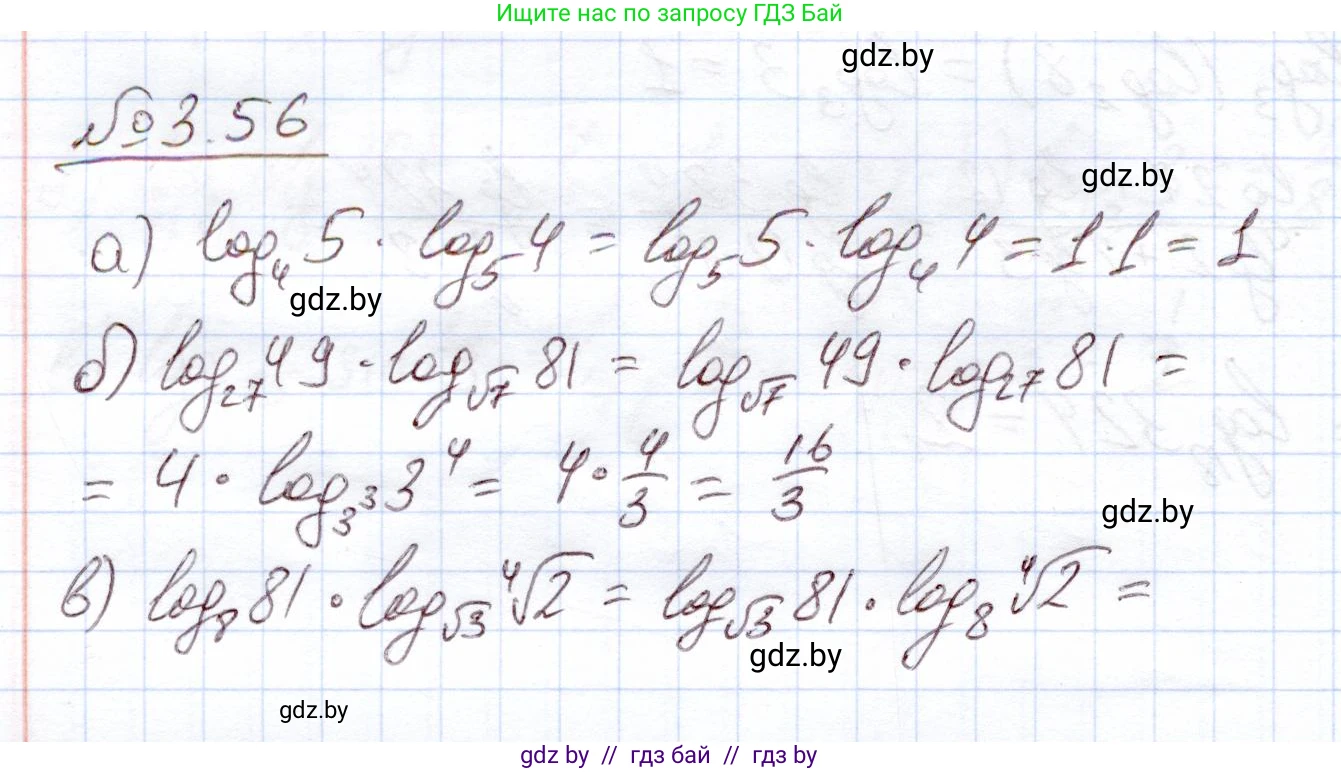 Ищите нас по запросу ГДЗ Бай
gdz.by
№ 3.56
gdz.by
а) log₄ 5 · log₅ 4 = log₅ 5 · log₄ 4 = 1·1 = 1
gdz.by
б) log₂₇ 49 · log_√7 81 = log_√7 49 · log₂₇ 81 =
= 4 · log_3³ 3⁴ = 4 · 4/3 = 16/3
gdz.by
в) log₈ 81 · log_√3 ⁴√2 = log_√3 81 · log₈ ⁴√2 =
gdz.by
gdz.by
gdz.by // гдз бай // гдз by